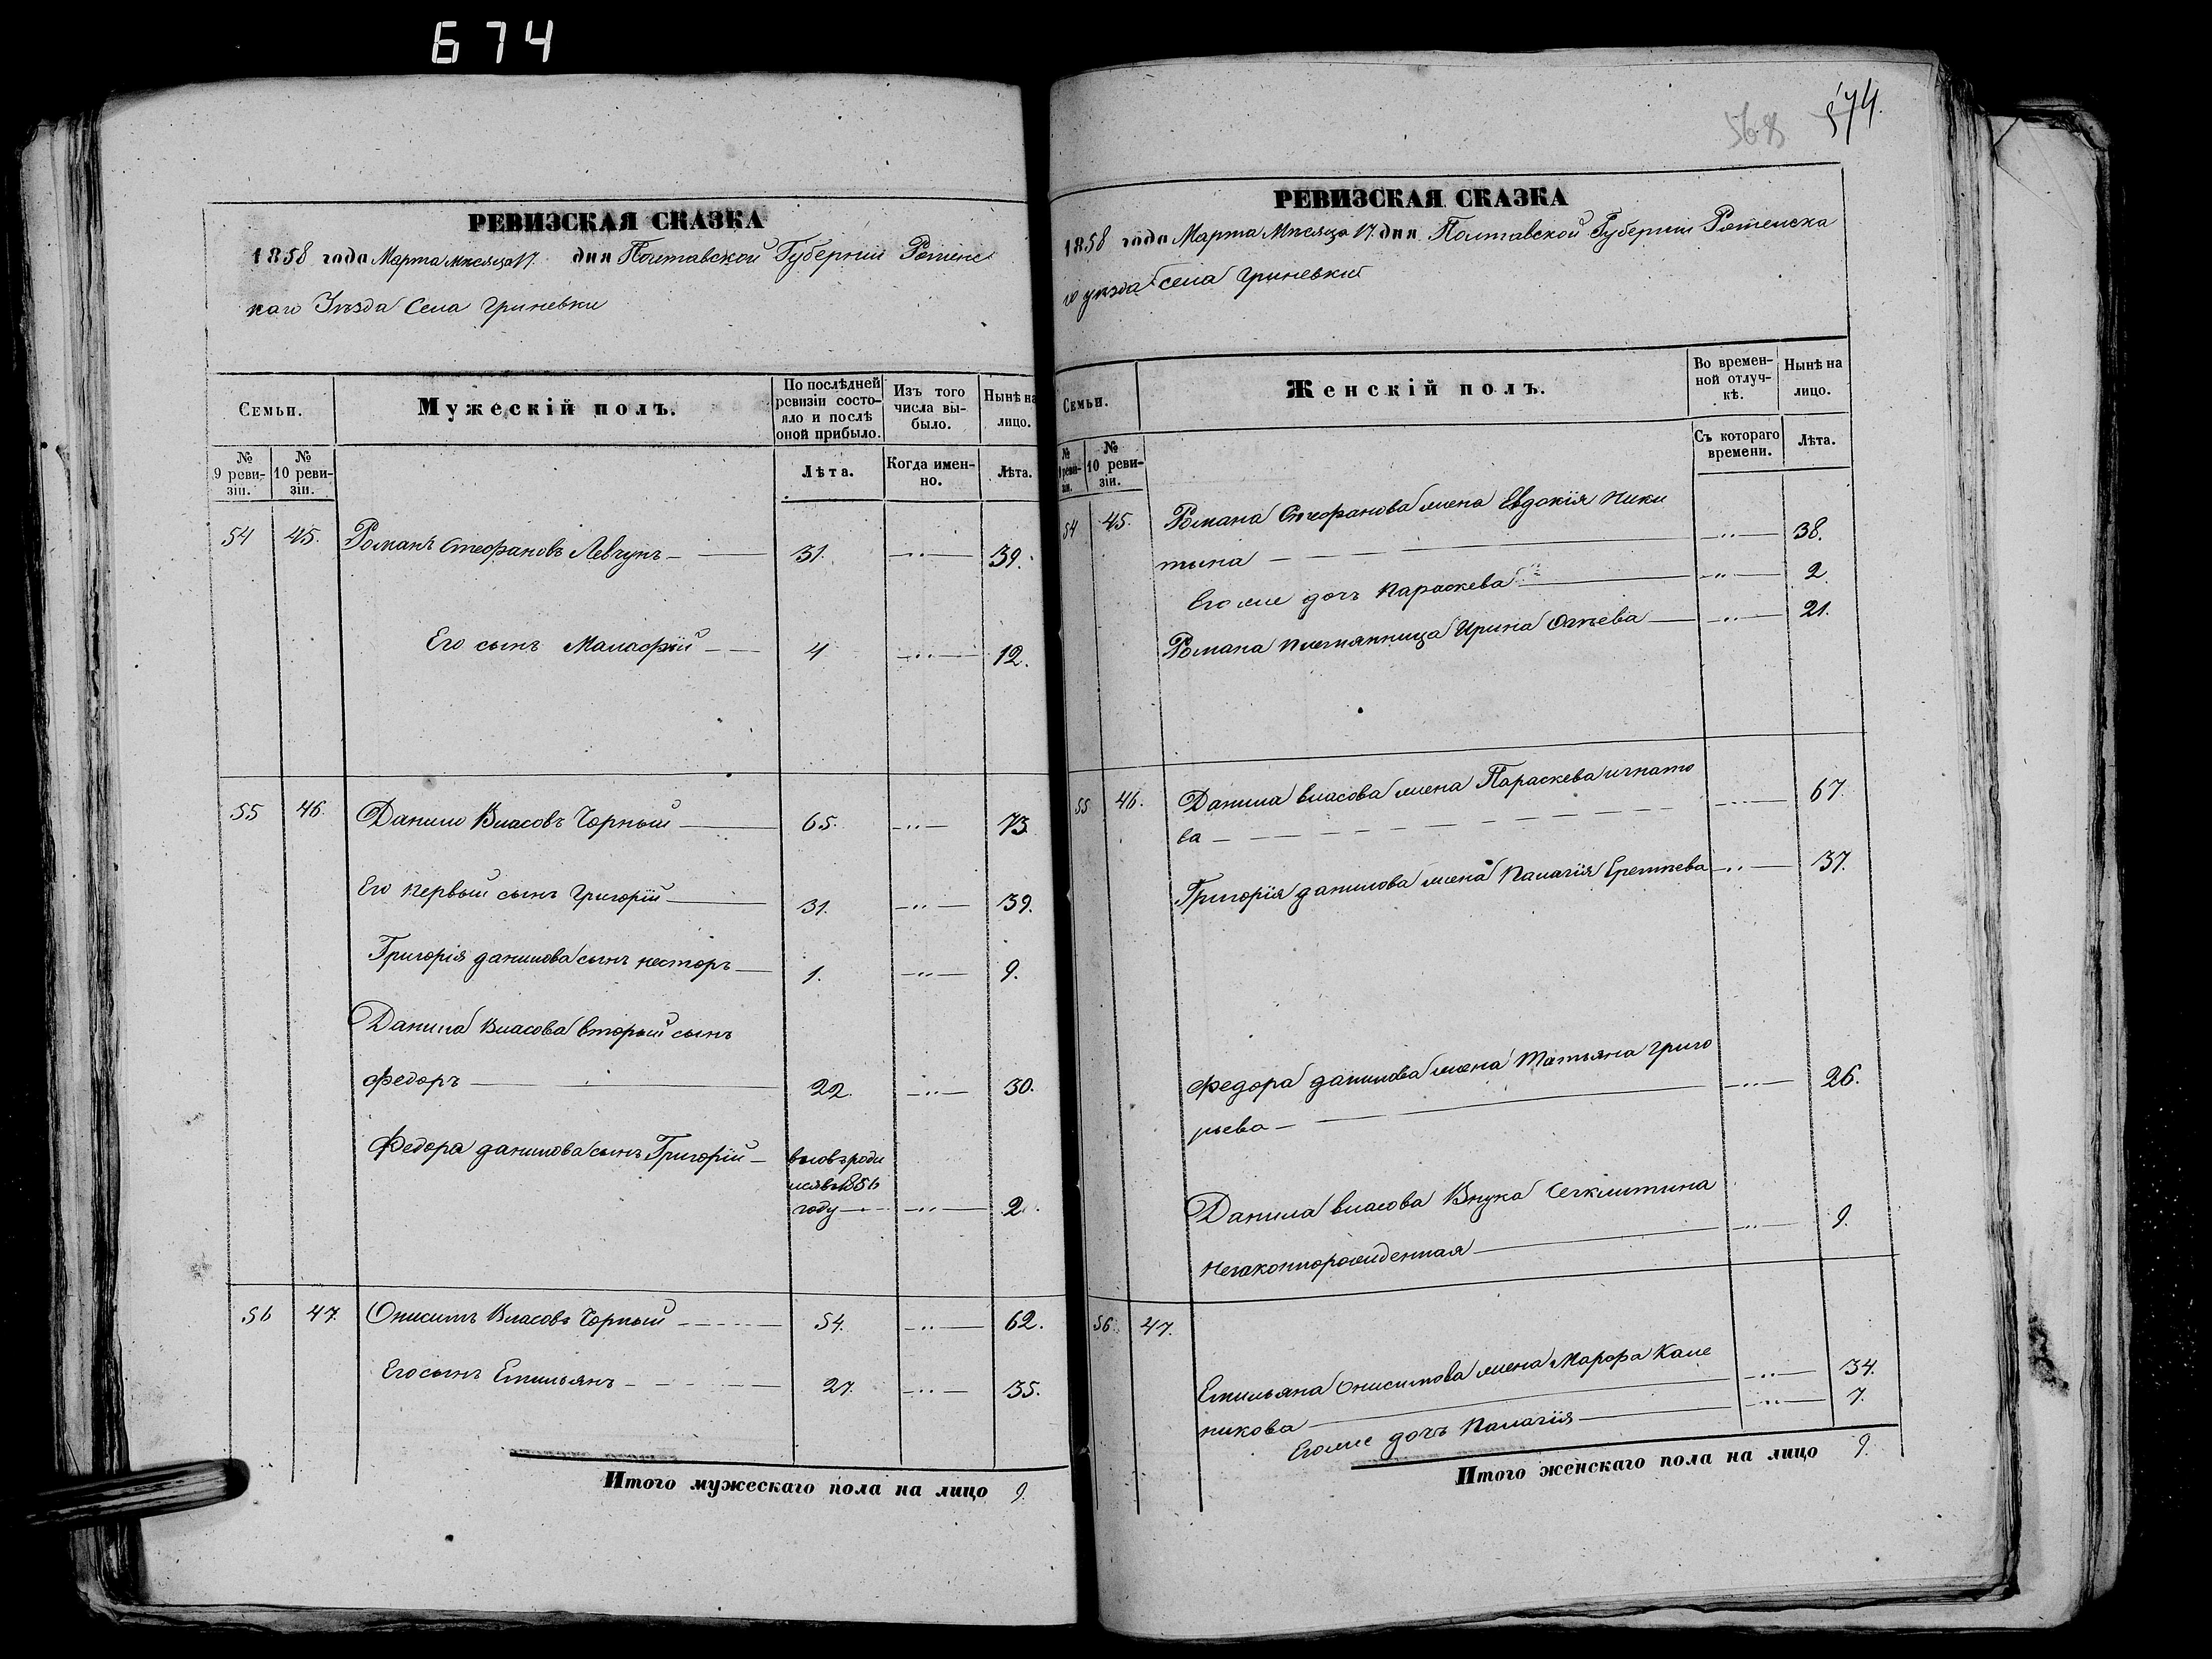 674
РЕВИЗСКАЯ СКАЗКА
1858 года Марта месяца 17. дня Полтавской Губернии Роменс
каго Уезда Села Гриневки
Семьи.
Мужескій полъ.
По послѣдней ревизіи состояло и послѣ оной прибыло.
Изъ того числа выбыло.
Нынѣ на лицо.
№ 9 ревизіи.
№ 10 ревизіи.
Лѣта.
Когда именно.
Лѣта.
54 45. Романъ Стефановъ Левчунъ 31. 39.
Его сынъ Маласфій 4 12.
55 46. Данило Власовъ Чорный 65. 73.
Его первый сынъ Григорій 31. 39.
Григорія данилова сынъ несторъ 1. 9.
Данила Власова вторый сынъ
федоръ 22. 30.
Федора данилова сынъ Григорій вновь роди
лся въ 1856
году 2.
56 47. Онисимъ Власовъ Чорный 54. 62.
Его сынъ Емильянъ 27. 35.
Итого мужескаго пола на лицо 9.
568 574.
РЕВИЗСКАЯ СКАЗКА
1858 года Марта Месяца 17. дня Полтавской Губернии Роменска
го уезда села Гриневки
Семьи.
Женскій полъ.
Во временной отлучкѣ.
Нынѣ на лицо.
№ 9 ревизіи.
№ 10 ревизіи.
Съ котораго времени.
Лѣта.
54 45. Романа Стефанова жена Евдокія Ники
тина 38.
Его же дочъ Параскева 2
Романа племянница Ирина 21.
55 46. Данила власова жена Параскева игнато
ва 67.
Григорія данилова жена Палагія Еремеева 37.
федора данилова жена Татьяна григо
рьева 26.
Данила власова Внука
незаконнорожденная 9.
56. 47.
Емильяна Онисимова жена Марфа Кале
никова 34.
Его же дочъ Палагія 7.
Итого женскаго пола на лицо 9.